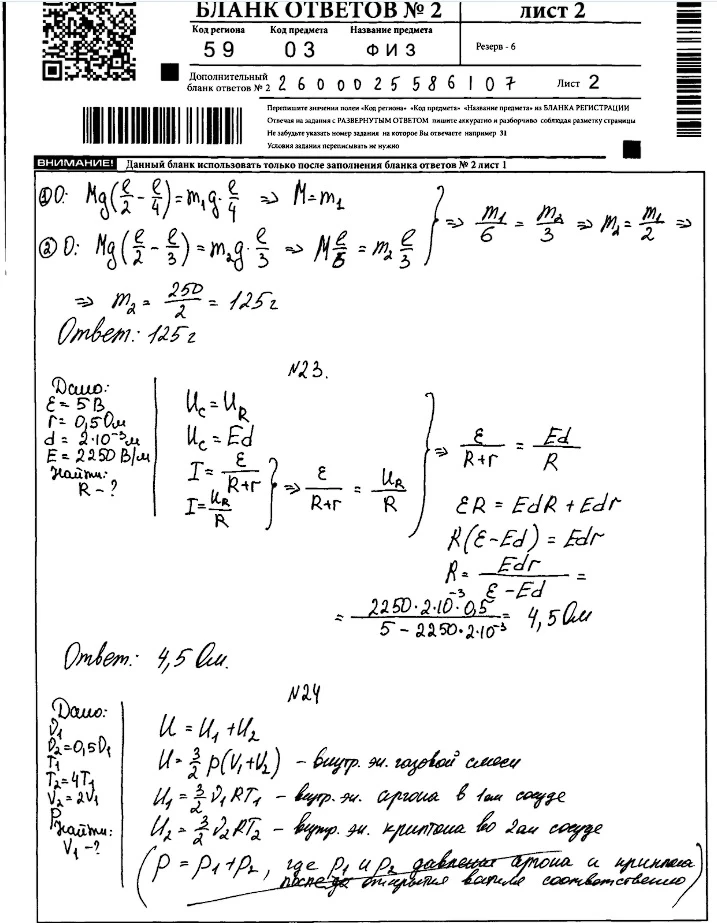 БЛАНК ОТВЕТОВ № 2
лист 2
Код региона Код предмета Название предмета
59 03 ФИЗ
Резерв - 6
Дополнительный бланк ответов № 2 2600025586107 Лист 2
Перепишите значения полей «Код региона» «Код предмета» «Название предмета» из БЛАНКА РЕГИСТРАЦИИ
Отвечая на задания с РАЗВЕРНУТЫМ ОТВЕТОМ пишите аккуратно и разборчиво соблюдая разметку страницы
Не забудьте указать номер задания на которое Вы отвечаете например 31
Условия задания переписывать не нужно
ВНИМАНИЕ! Данный бланк использовать только после заполнения бланка ответов № 2 лист 1
① O: Mg(ℓ/2 - ℓ/4) = m₁g·ℓ/4 => M = m₁
② O: Mg(ℓ/2 - ℓ/3) = m₂g·ℓ/3 => M ℓ/6 = m₂ ℓ/3
} => m₁/6 = m₂/3 => m₂ = m₁/2 =>
=> m₂ = 250/2 = 125 г
Ответ: 125 г
N23.
Дано:
ε = 5 В
r = 0,5 Ом
d = 2·10⁻³ м
E = 2250 В/м
Найти:
R - ?
U_C = U_R
U_C = Ed
I = ε/(R+r)
I = U_R/R
} => ε/(R+r) = U_R/R
} => ε/(R+r) = Ed/R
εR = EdR + Edr
R(ε - Ed) = Edr
R = Edr/(ε - Ed) =
= 2250·2·10⁻³·0,5/(5 - 2250·2·10⁻³) = 4,5 Ом
Ответ: 4,5 Ом.
N24
Дано:
ν₁
ν₂ = 0,5ν₁
T₁
T₂ = 4T₁
V₂ = 2V₁
P
Найти:
V₁ - ?
U = U₁ + U₂
U = 3/2 p(V₁ + V₂) - внутр. эн. газовой смеси
U₁ = 3/2 ν₁RT₁ - внутр. эн. аргона в 1ом сосуде
U₂ = 3/2 ν₂RT₂ - внутр. эн. криптона во 2ом сосуде
(P = P₁ + P₂, где P₁ и P₂ давления аргона и криптона
после открытия вентиля соответственно)